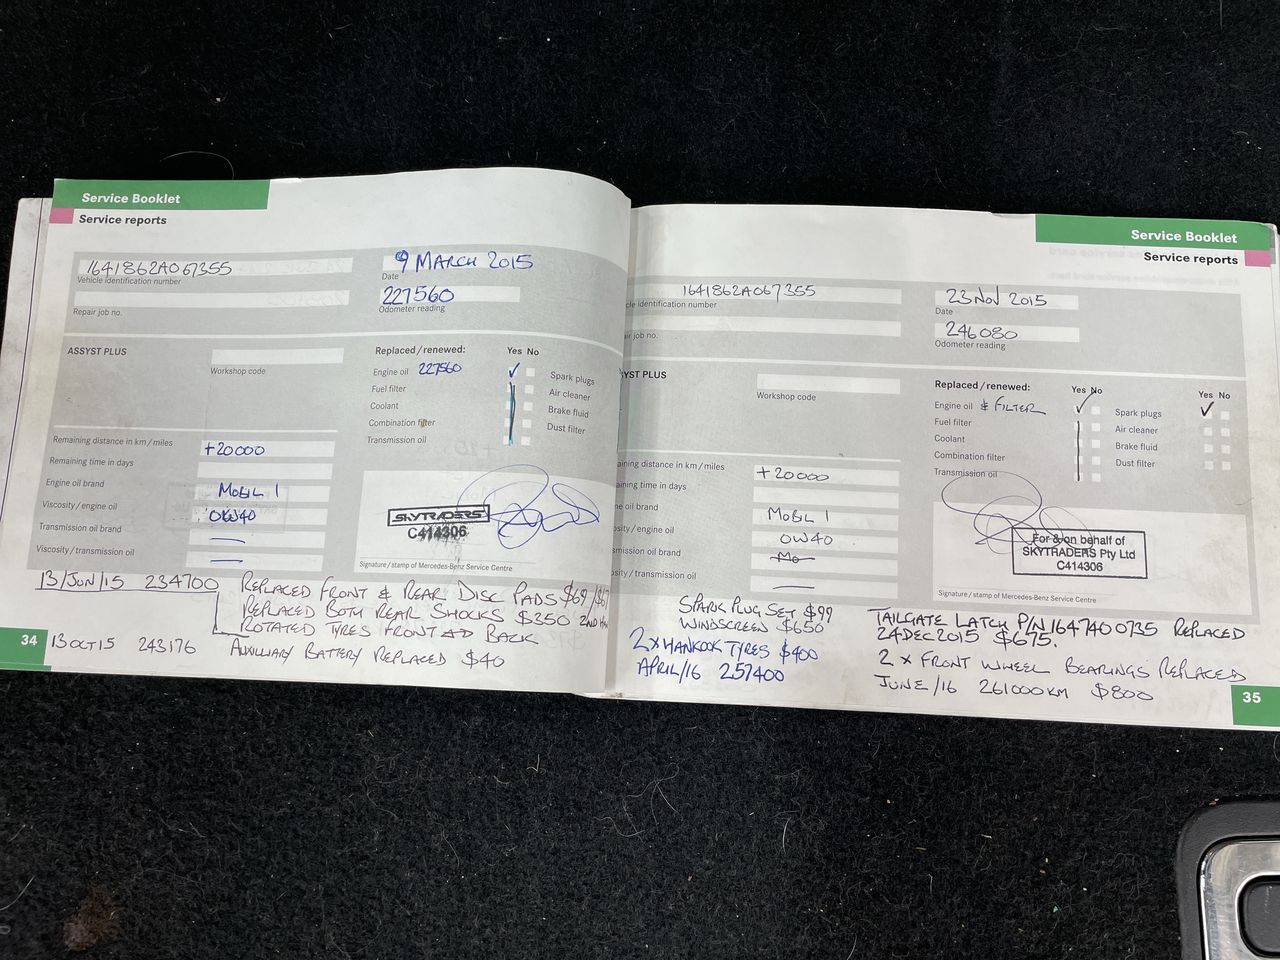 Service Booklet
Service reports
1641862A067355
Vehicle identification number
Repair job no.
9 MARCH 2015
Date
227560
Odometer reading
ASSYST PLUS
Workshop code
Replaced/renewed:
Yes No
Engine oil 227560
Fuel filter
Coolant
Combination filter
Transmission oil
Spark plugs
Air cleaner
Brake fluid
Dust filter
Remaining distance in km/miles
+20000
Remaining time in days
Engine oil brand
MOBIL 1
Viscosity/engine oil
0W40
Transmission oil brand
Viscosity/transmission oil
SKYTRADERS
C414306
Signature/stamp of Mercedes-Benz Service Centre
13/JUN/15 234700 REPLACED FRONT & REAR DISC PADS $69/$67
REPLACED BOTH REAR SHOCKS $350 2ND
ROTATED TYRES FRONT BACK
34
13 OCT 15 243176 AUXILIARY BATTERY REPLACED $40
Service Booklet
Service reports
1641862A067355
cle identification number
air job no.
23 NOV 2015
Date
246080
Odometer reading
YST PLUS
Workshop code
Replaced/renewed:
Yes No
Yes No
Engine oil & FILTER
Fuel filter
Coolant
Combination filter
Transmission oil
Spark plugs
Air cleaner
Brake fluid
Dust filter
aining distance in km/miles
+20000
aining time in days
ne oil brand
MOBIL 1
sity/engine oil
0W40
smission oil brand
Mo
osity/transmission oil
For & on behalf of
SKYTRADERS Pty Ltd
C414306
Signature/stamp of Mercedes-Benz Service Centre
SPARK PLUG SET $99
WINDSCREEN $650
2 X HANKOOK TYRES $400
APRIL/16 257400
TAILGATE LATCH P/N 1647400735 REPLACED
24 DEC 2015 $675.
2 x FRONT WHEEL BEARINGS REPLACED
JUNE/16 261000 KM $800
35